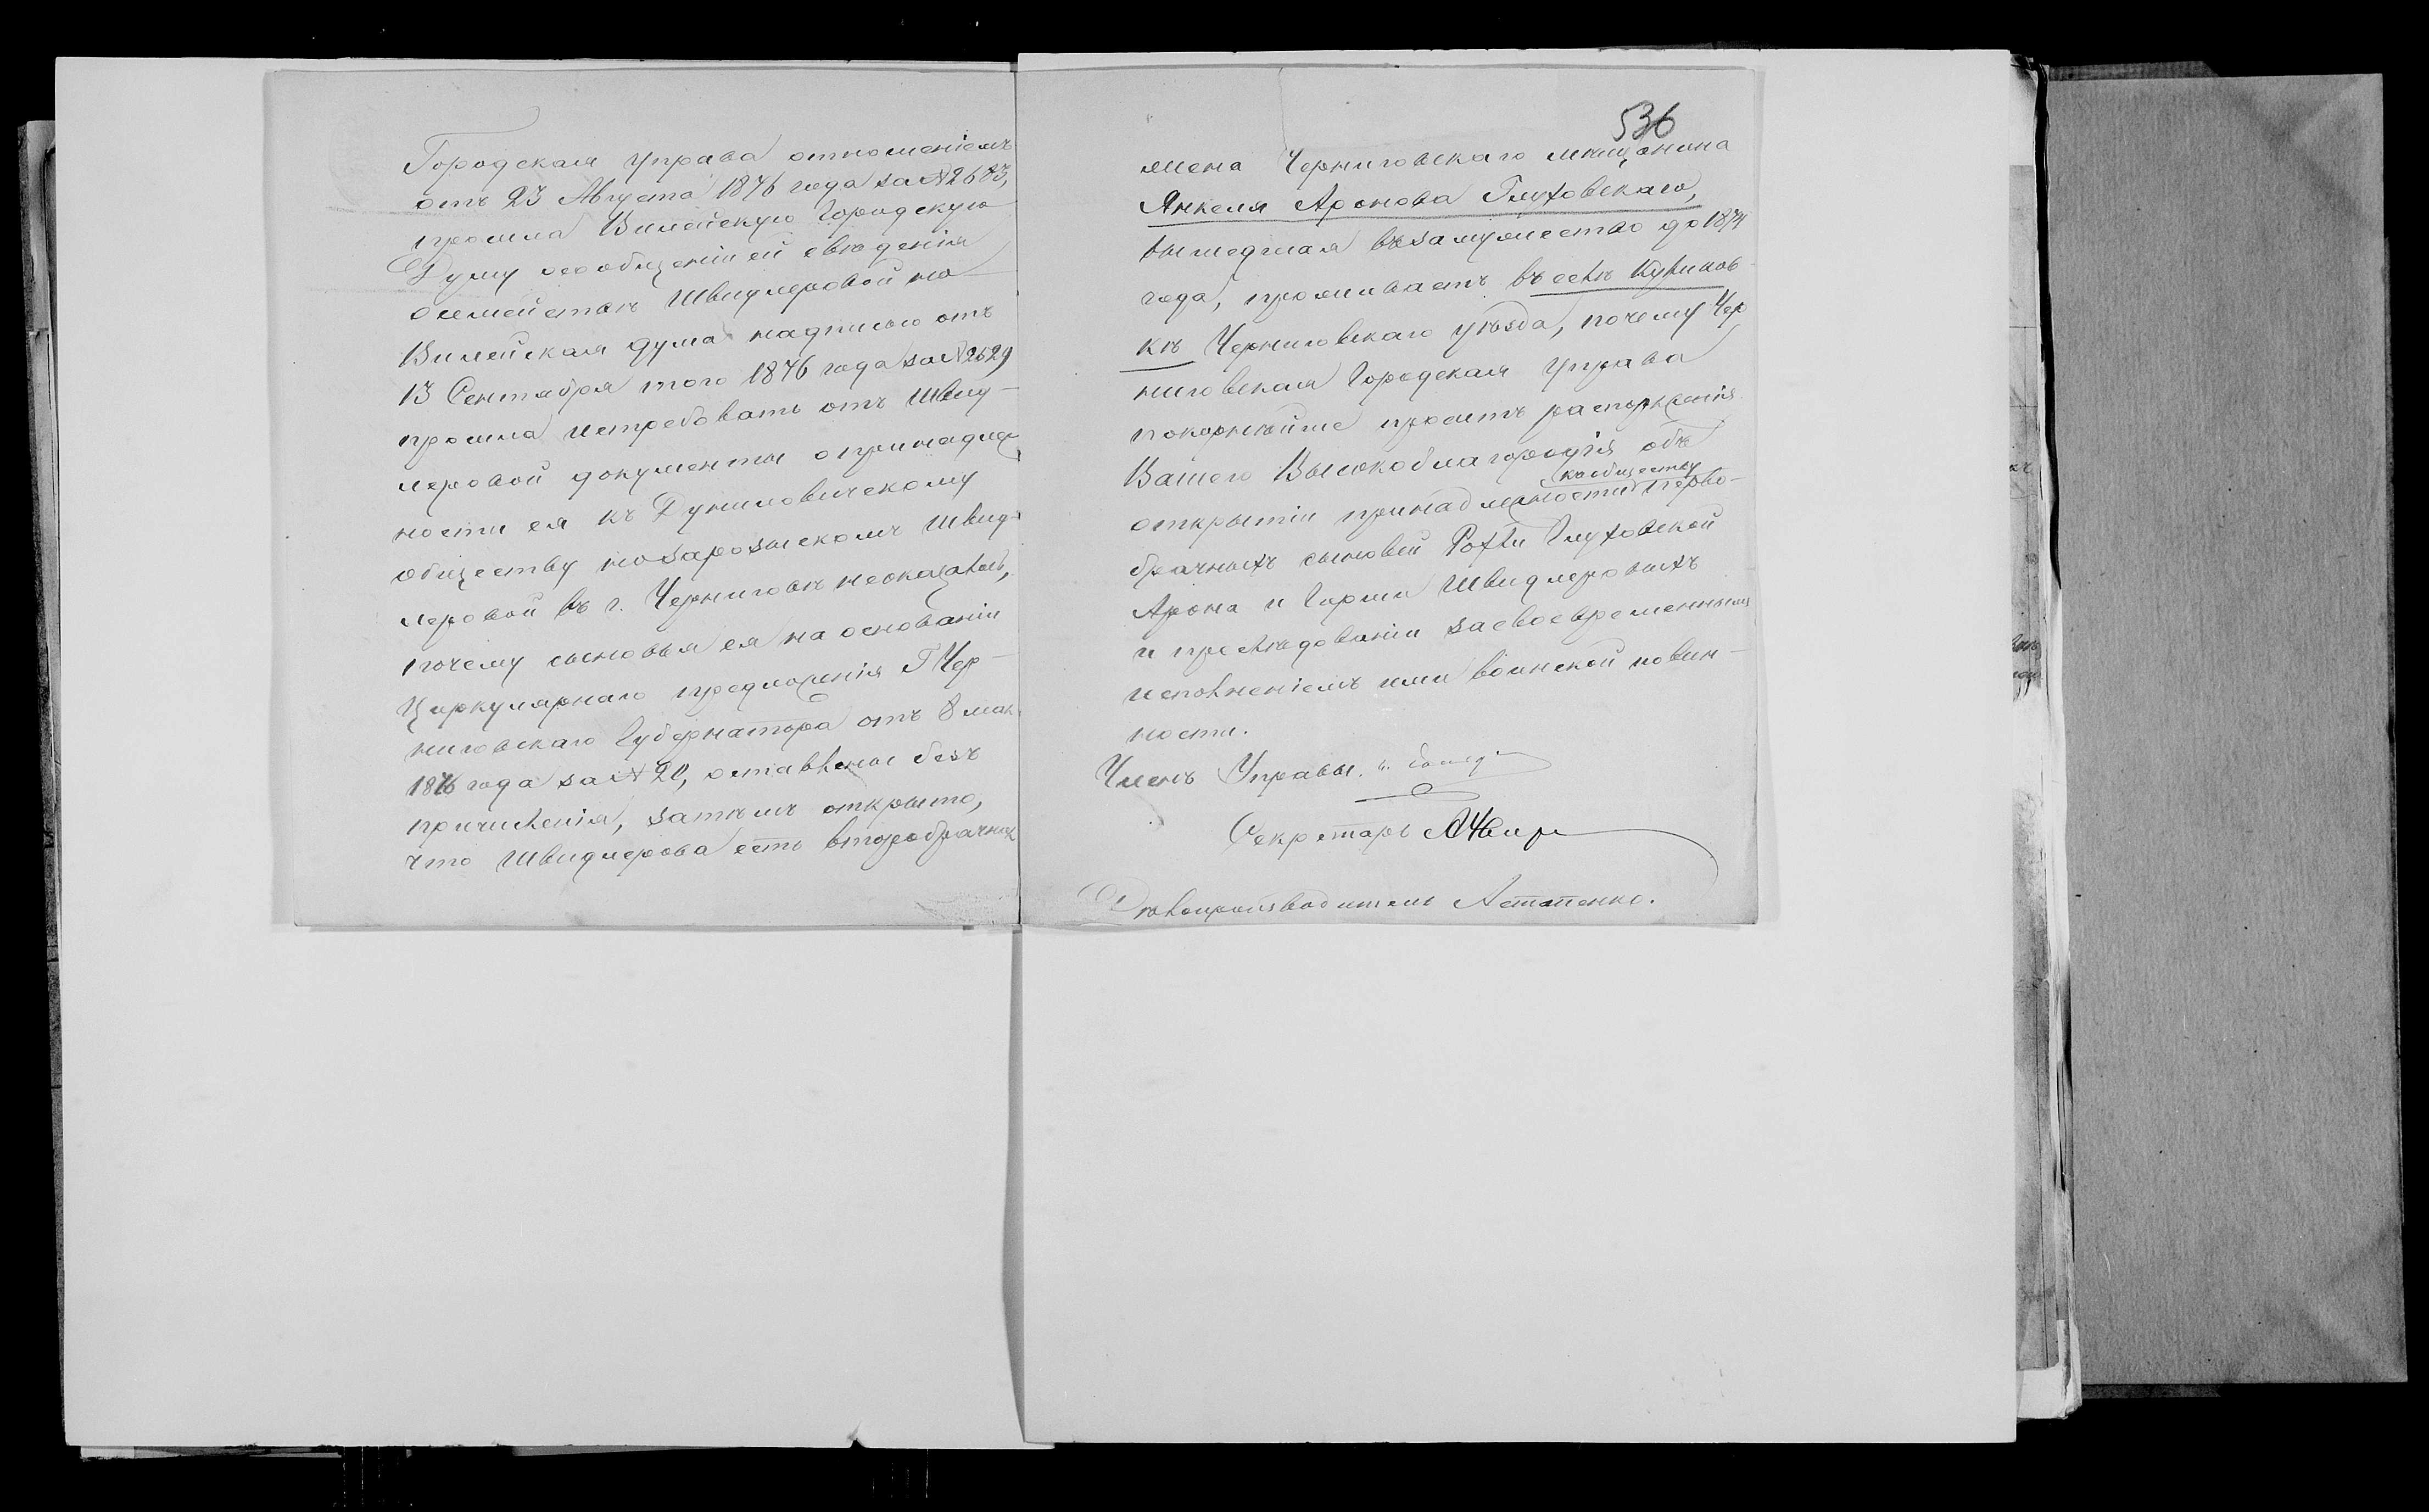 Городская Управа отношеніемъ
отъ 23 Августа 1876 года за № 2683,
просила Вилейскую Городскую
Думу о сообщеніи ей свѣденія
о семействѣ Швидлеровой но
Вилейская дума надписью отъ
13 Сентября того 1876 года за № 2529
просила истребовать отъ Швид-
леровой документы о принадле
ности ея къ Дуниловичскому
обществу но за розыскомъ Швид-
леровой въ г. Черниговѣ неоказалось,
почему сыновья ея на основаніи
Циркулярнаго предложенія Г Чер-
ниговскаго Губернатора отъ 8 мая
1876 года за № 20, оставлены безъ
причисленія, затѣмъ открыто,
что Швидлерова есть второбрачная
536
жена Черниговскаго мещанина
Янкеля Аронова Глуховскаго,
вышедшая въ замужество до 1874
года, проживаетъ въ селѣ Кувинов-
кѣ Черниговскаго уѣзда, почему Чер
ниговская Городская Управа
покорнѣйше проситъ распоряженія
Вашего Высокоблагородія объ
открытіи принадлежности къ обществу перво-
брачныхъ сыновей Рохли Глуховской
Арона и Гирши Швидлеровыхъ
и преслѣдованіи за своевременнымъ
исполненіемъ ими воинской повин-
ности.
Членъ Управы.
Секретарь
Дѣлопроизводитель Астатенко.